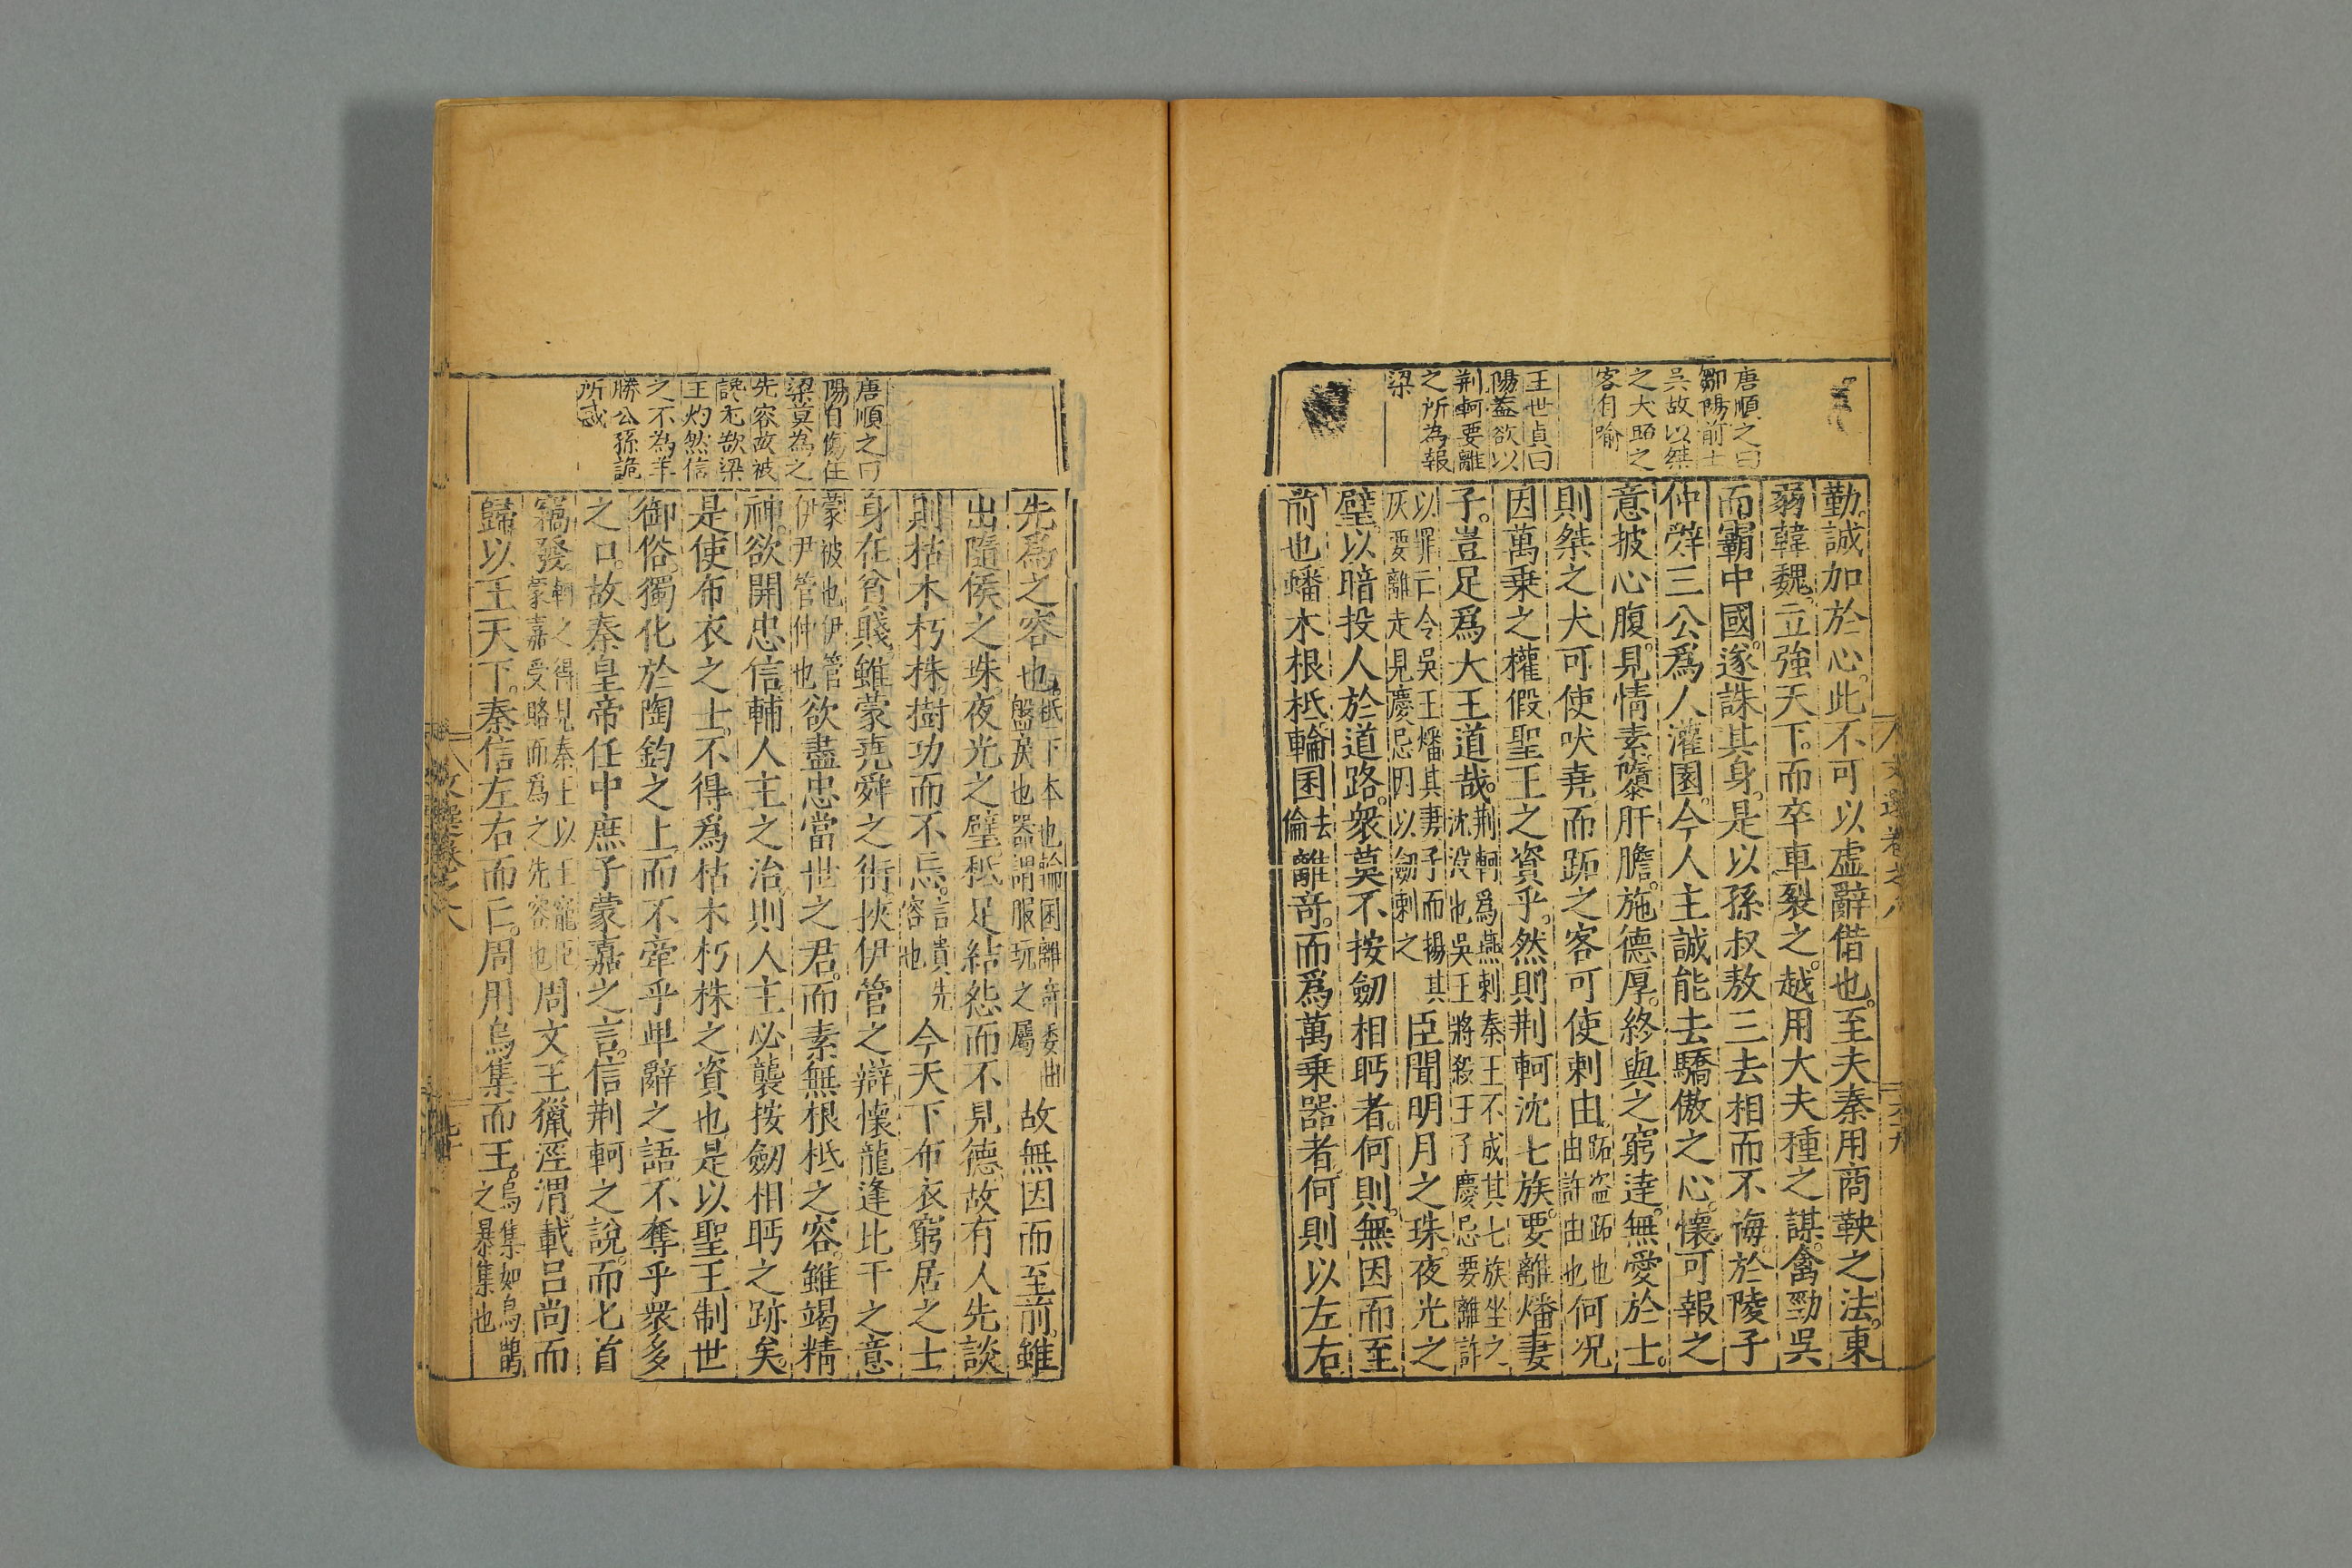 唐順之曰
鄒陽前士
吳故以桀
之犬跖之
客自喻
王世貞曰
陽葢欲以
荆軻要離
之所為報
梁
勤誠加於心此不可以虛辭借也至夫秦用商鞅之法東
弱韓魏立強天下而卒車裂之越用大夫種之謀禽勁吳
而霸中國遂誅其身是以孫叔敖三去相而不悔於陵子
仲辭三公爲人灌園今人主誠能去驕傲之心懷可報之
意披心腹見情素隳肝膽施德厚終與之窮達無愛於士
則桀之犬可使吠堯而跖之客可使刺由跖盗跖也由許由也何况
因萬乗之權假聖王之資乎然則荆軻沈七族要離燔妻
子豈足爲大王道哉荆軻爲燕刺秦王不成其七族坐之沈沒也吳王將殺王子慶忌要離詐
以罪亡令吳王燔其妻子而揚其灰要離走見慶忌因以劒刺之臣聞明月之珠夜光之
璧以暗投人於道路衆莫不按劒相眄者何則無因而至
前也蟠木根柢輪囷去倫離奇而爲萬乗器者何則以左右
文選卷之八
唐順之曰
陽自傷仕
梁莫為之
先容故被
讒冘欲梁
王灼然信
之不為羊
勝公孫詭
所惑
先爲之容也柢下本也輪囷離奇委曲盤戾也器謂服玩之屬故無因而至前雖
出隨侯之珠夜光之璧秪足結怨而不見德故有人先談
則枯木朽株樹功而不忘言貴先容也今天下布衣窮居之士
身在貧賤雖蒙堯舜之術挾伊管之辯懷龍逢比干之意
蒙被也伊管伊尹管仲也欲盡忠當世之君而素無根柢之容雖竭精
神欲開忠信輔人主之治則人主必襲按劒相眄之跡矣
是使布衣之士不得爲枯木朽株之資也是以聖王制世
御俗獨化於陶鈞之上而不牽乎卑辭之語不奪乎衆多
之口故秦皇帝任中庶子蒙嘉之言信荆軻之說而匕首
竊發軻之得見秦王以王寵臣蒙嘉受賂而爲之先容也周文王獵涇渭載呂尚而
歸以王天下秦信左右而亡周用烏集而王烏集如烏鵲之暴集也